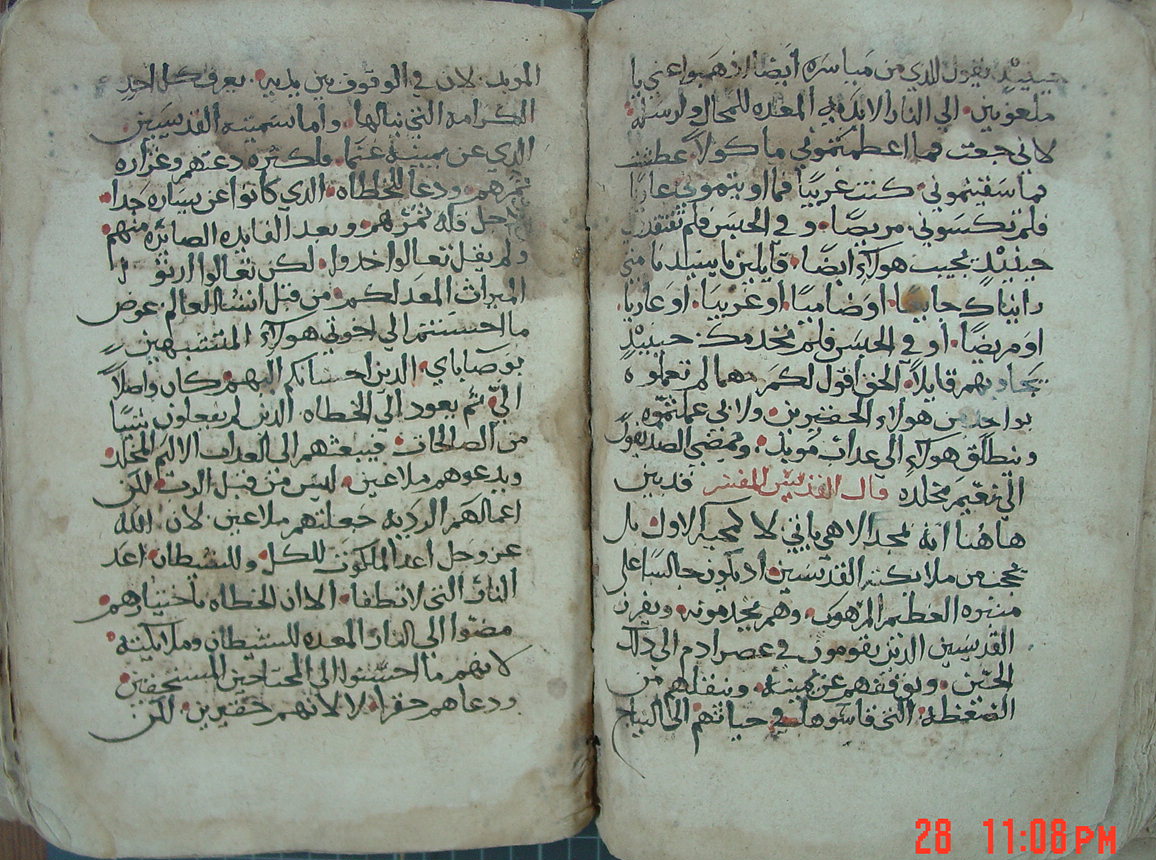 حينيذٍ يقول للدي من مياسره ايضا ادهبوا عني يا
ملعونين الي النار الابديه المعده للمحال ولرسله
لاني جعت فما اعطمتموني ماكولا عطشت
فما سقيتموني كنت غريبًا فما اويتموني عاريًا
فلم تكسوني مريضًا وفي الحبس فلم تفتقدوني
حينيذٍ يجيب هولاءِ ايضا قايلين يا سيدنا متي
رايناك جايعًا اوضاميًا اوغريبًا اوعاريا
اومريضًا اوفي الحبس فلم نخدمك حينيذٍ
يجاوبهم قايلاً الحق اقول لكم مهما لم تعملوه
بواحد من هولاء الحقيرين ولا بي عملتموه
وينطلق هولاءِ الي عداب مويد ويمضي الصديقون
الي نعيم مخلده قال القديس المفسر قد بين
هاهنا انه بمجد الاهي ياتي لا كمجيه الاول بل
بحجب من ملايكته القديسين اد يكون جالسًا علي
منبره العظيم المرهوب وهم يمجدونه ويفرز
القديسين الدين يقومون في عصر ادم الي دلك
الحين ويوقفهم عن يمينه وينقلهم من
الضغطه التي قاسوها في حياتهم الي النياح
المويد لان في الوقوف بين يديه يعرف كل احدٍ
الكرامه التي ينالها واما تسميته القديسين
الدي عن يمينه غنما فلكثره دعتهم وغزاره
ثمرهم ودعا الخطاه الدي كانوا عن يساره جدا
من اجل قله ثمرهم وبعد الفايده الصايره منهم
ولم يقل تعالوا خدوا لكن تعالوا ارثوا
الميراث المعد لكم من قبل انشا العالم عوض
ما احسنتم الي اخوتي هولاءِ المتشبهين
بوصاياي الدين احسانكم اليهم كان واصلاً
اليّ ثم يعود الي الخطاه الدين لم يفعلون شيًا
من الصالحات فيبعثهم الي العداب الاليم المخلد
ويدعوهم ملاعين ليس من قبل الرب لكن
اعمالهم الرديه جعلتهم ملاعين لان الله
عز وجل اعد الملكوت للكل وللشيطان اعد
النار التي لا تطفا الا ان الخطاه باختيارهم
مضوا الي النار المعده للشيطان وملايكته
لانهم ما احسنوا الي المحتاجين المستحقين
ودعاهم حقرا لا لانهم حقيرين لكن
28 11:08 PM